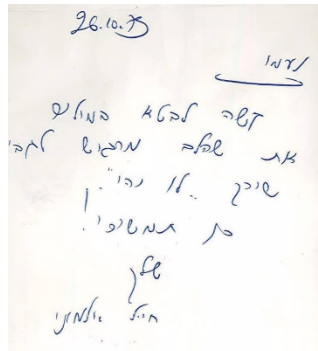 26.10.73
נעמי
קשה לבטא במילים
את שהלב מרגיש לגבי
שירך "לו יהי".
כן תמשיכי!
שלך
חייל אלמוני